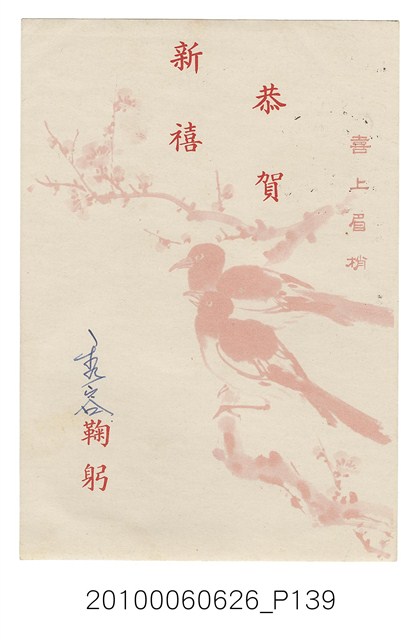 喜上眉梢
恭賀
新禧
鞠躬
20100060626_P139